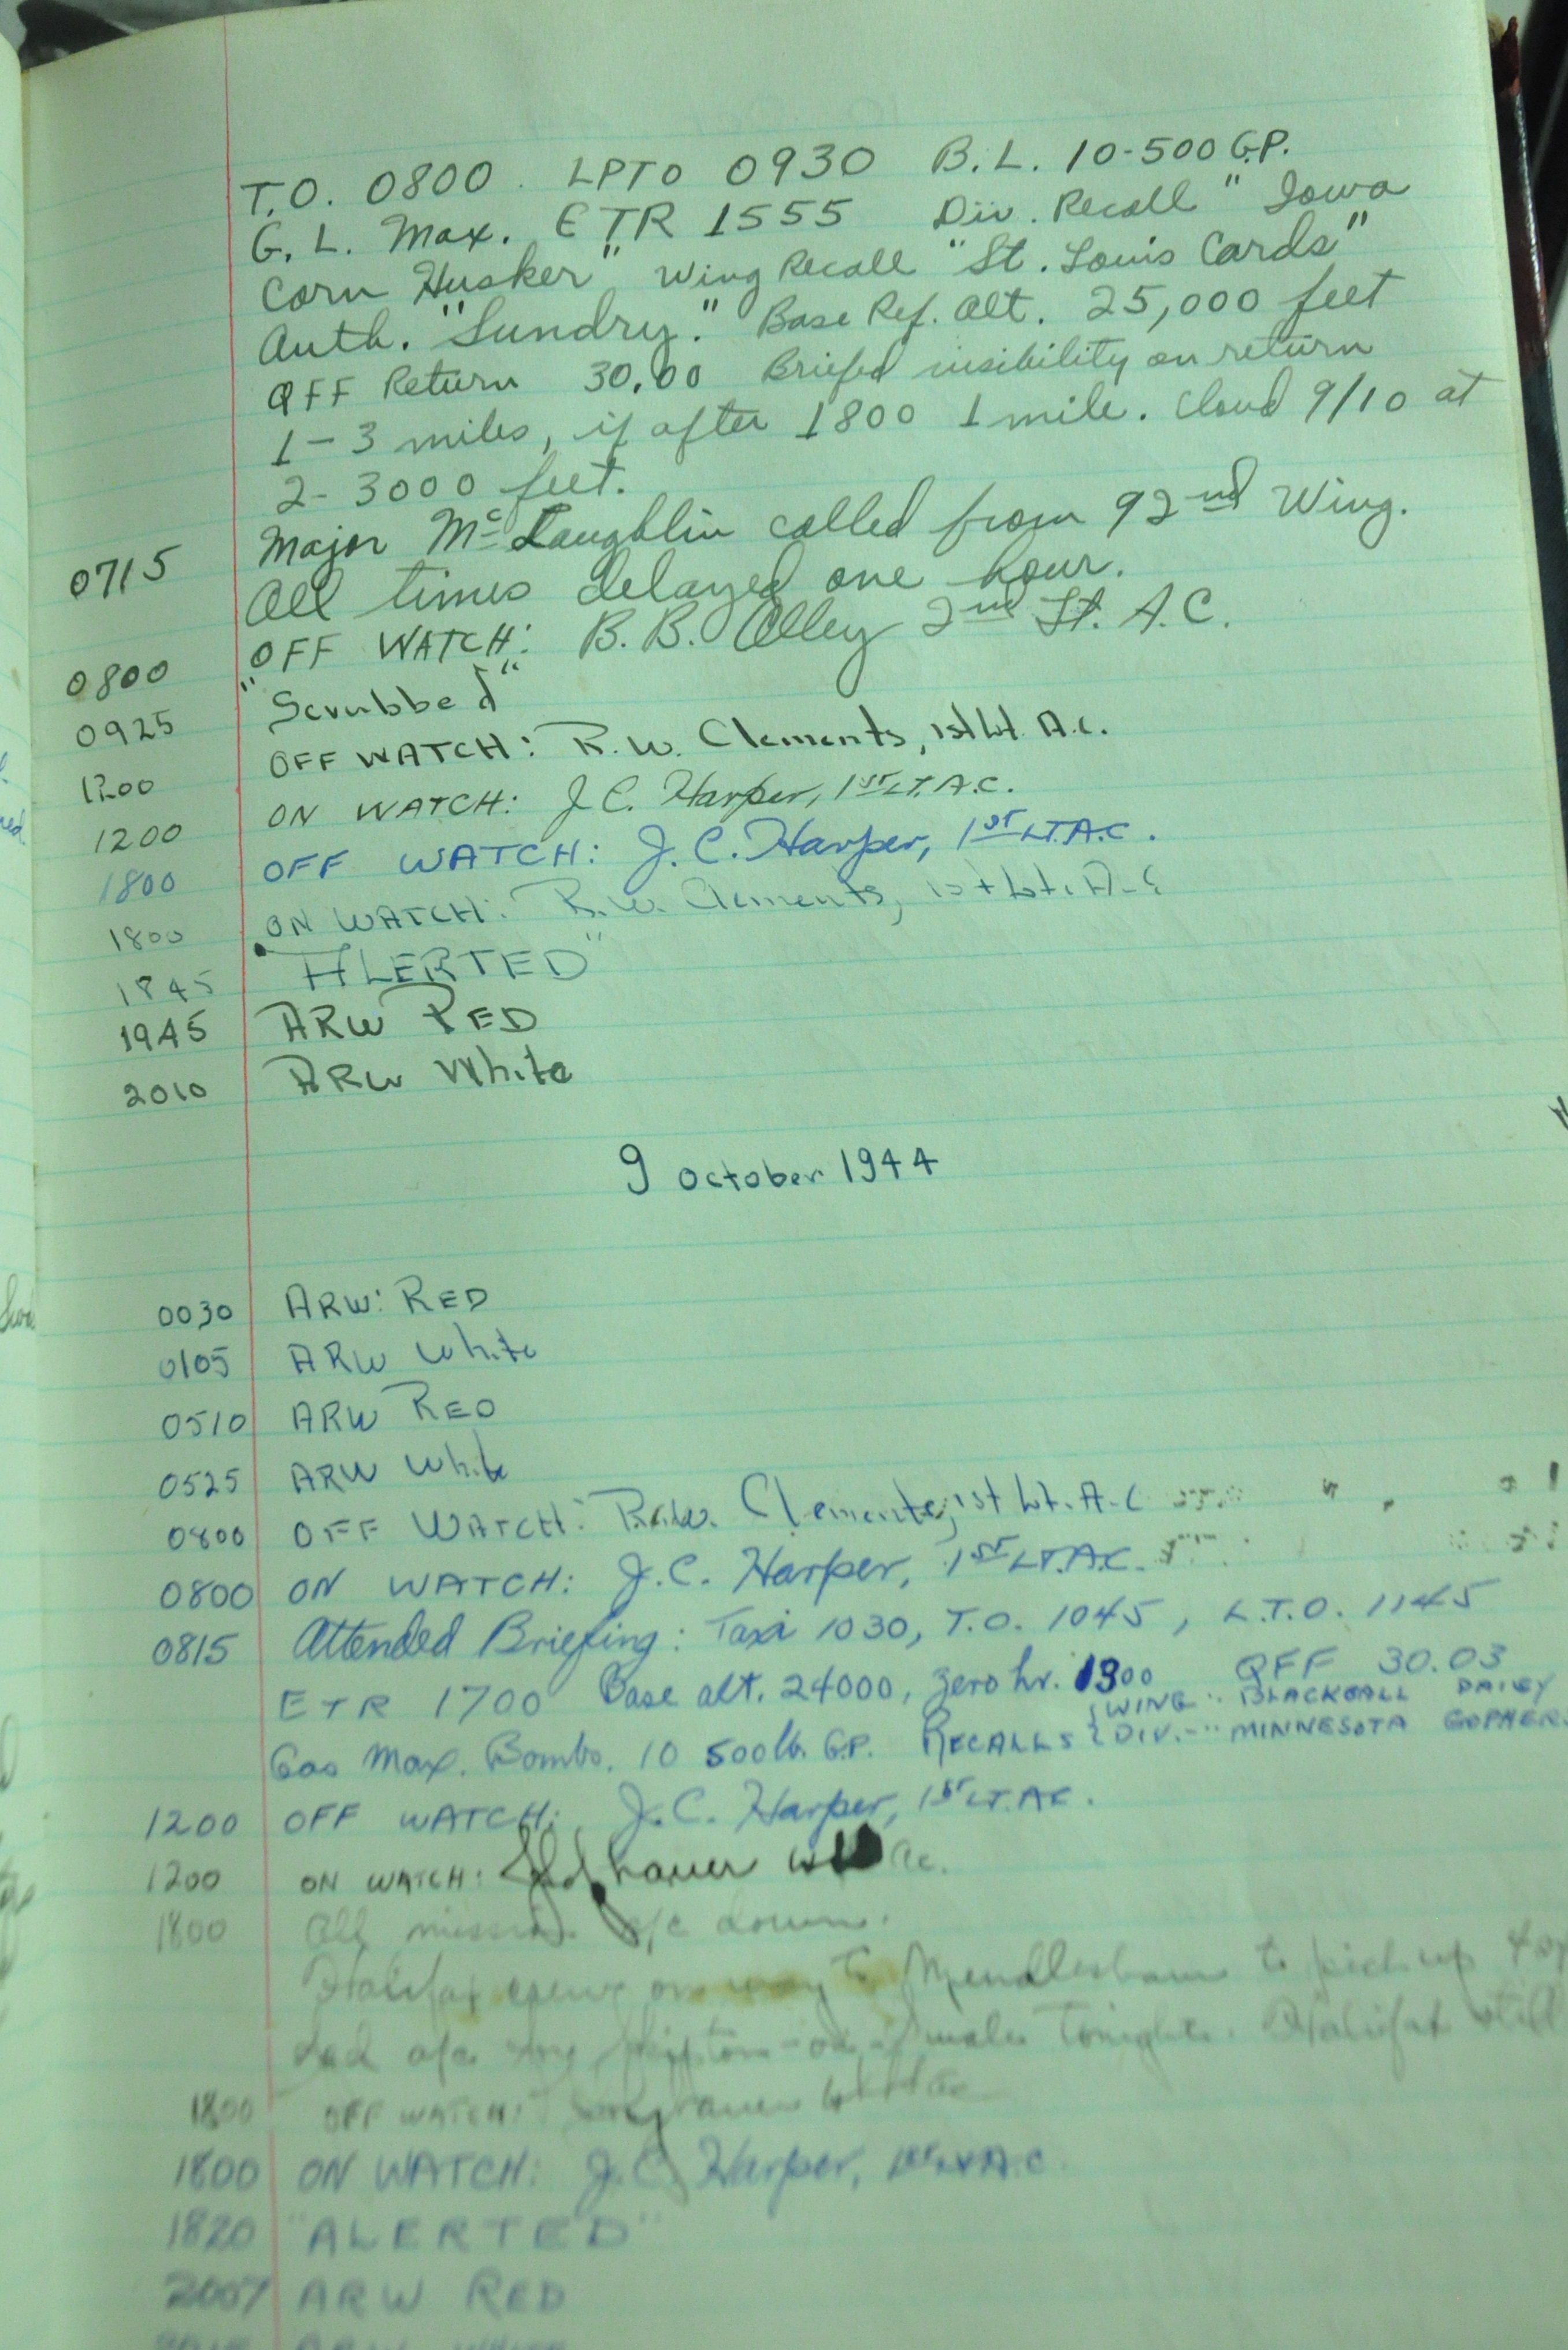 T.O. 0800. LPTO 0930 B.L. 10-500 G.P.
G.L. Max. ETR 1555 Div. Recall "Iowa
Corn Husker" Wing Recall "St. Louis Cards"
Auth. "Sundry." Base Ref. Alt. 25,000 feet
QFF Return 30.00 Briefed visibility on return
1-3 miles, if after 1800 1 mile. Cloud 9/10 at
2-3000 feet.
0715 Major McLaughlin called from 92nd Wing.
All times delayed one hour.
0800 OFF WATCH: B.B. Olley 2nd Lt. A.C.
0925 "Scrubbed"
1200 OFF WATCH: R.W. Clements, 1st Lt. A.C.
1200 ON WATCH: J.C. Harper, 1ST LT. A.C.
1800 OFF WATCH: J.C. Harper, 1ST LT. A.C.
1800 ON WATCH: R.W. Clements, 1st Lt. A-C
1845 "ALERTED"
1945 ARW RED
2010 ARW White
9 October 1944
0030 ARW: RED
0105 ARW White
0510 ARW RED
0525 ARW White
0800 OFF WATCH: R.W. Clements, 1st Lt. A-C
0800 ON WATCH: J.C. Harper, 1ST LT. A.C.
0815 Attended Briefing: Taxi 1030, T.O. 1045, L.T.O. 1145
ETR 1700 Base alt. 24000, zero hr. 1300 QFF 30.03
WING - BLACKBALL DAISY
Gas Max. Bombs. 10 500 lb. G.P. RECALLS DIV. - "MINNESOTA GOPHERS
1200 OFF WATCH: J.C. Harper, 1ST LT. A.C.
1200 ON WATCH: ac.
1800 All mission a/c down.
Halifax crew on way to Mendlesham to pick up
a/c tonight. Halifax still
1800 OFF WATCH:
1800 ON WATCH: J.C. Harper, 1st Lt A.C.
1820 "ALERTED"
2007 ARW RED
ARW WHITE